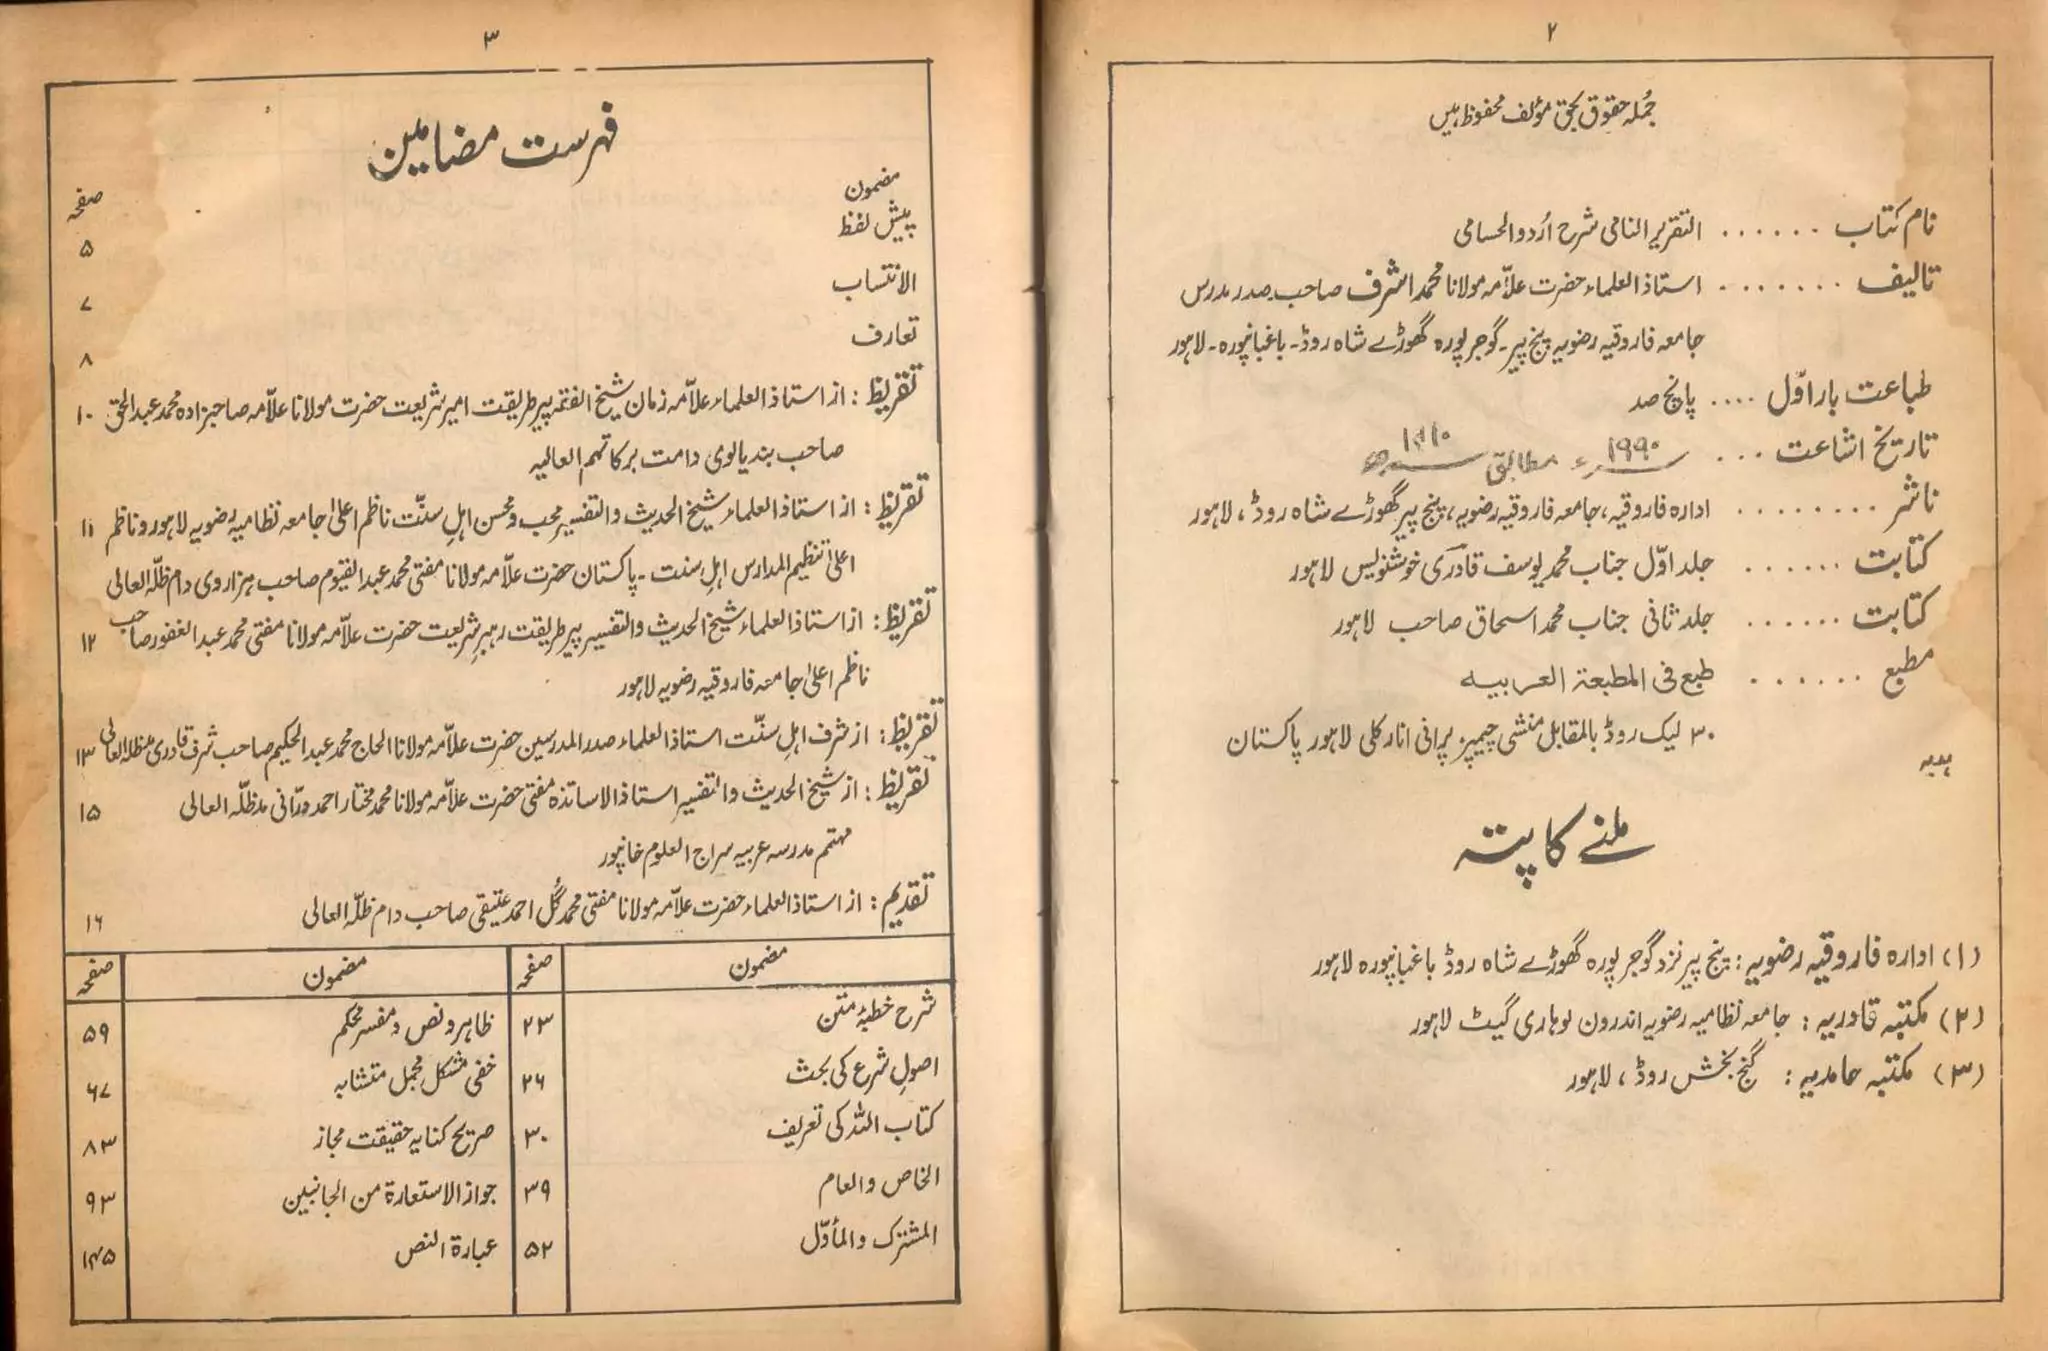 ۲
جُملہ حقوق بحق مؤلف محفوظ ہیں
نام کتاب ...... التقریر النامی شرح اُردو الحسامی
تالیف ....... استاذ العلماء حضرت علاّمہ مولانا محمد اشرف صاحب صدر مدرس
جامعہ فاروقیہ رضویہ پنج پیر۔ گوجر پورہ گھوڑے شاہ روڈ۔ باغبانپورہ۔ لاہور
طباعت بار اوّل .... پانچ صد
تاریخ اشاعت ... ۱۹۹۰ء مطابق ۱۴۱۰ھ
ناشر ........ ادارہ فاروقیہ، جامعہ فاروقیہ رضویہ، پنج پیر گھوڑے شاہ روڈ، لاہور
کتابت ...... جلد اوّل جناب محمد یوسف قادری خوشنویس لاہور
کتابت ...... جلد ثانی جناب محمد اسحاق صاحب لاہور
مطبع ...... طبع فی المطبعة العربیہ
۳۰ لیک روڈ بالمقابل منشی چیمبرز پرانی انارکلی لاہور پاکستان
ہدیہ
ملنے کا پتہ
(۱) ادارہ فاروقیہ رضویہ: پنج پیر نزد گوجر پورہ گھوڑے شاہ روڈ باغبانپورہ لاہور
(۲) مکتبہ قادریہ: جامعہ نظامیہ رضویہ اندرون لوہاری گیٹ لاہور
(۳) مکتبہ حامدیہ: گنج بخش روڈ، لاہور
۳
فہرست مضامین
مضمون صفحہ
پیش لفظ ۵
الانتساب ۷
تعارف ۸
تقریظ: از استاذ العلماء علاّمہ زمان شیخ الفقہ پیر طریقت امیر شریعت حضرت مولانا علاّمہ صاحبزادہ محمد عبد الحق ۱۰
صاحب بندیالوی دامت برکاتہم العالیہ
تقریظ: از استاذ العلماء شیخ الحدیث والتفسیر محب و محسن اہلِ سنّت ناظم اعلیٰ جامعہ نظامیہ رضویہ لاہور و ناظم ۱۱
اعلیٰ تنظیم المدارس اہلِ سنت۔ پاکستان حضرت علاّمہ مولانا مفتی محمد عبد القیوم صاحب ہزاروی دام ظلہ العالی
تقریظ: از استاذ العلماء شیخ الحدیث والتفسیر پیر طریقت رہبر شریعت حضرت علاّمہ مولانا مفتی محمد عبد الغفور صاحب ۱۲
ناظم اعلیٰ جامعہ فاروقیہ رضویہ لاہور
تقریظ: از شرف اہلِ سنّت استاذ العلماء صدر المدرسین حضرت علاّمہ مولانا الحاج محمد عبد الحکیم صاحب شرف قادری مدظلہ العالی ۱۳
تقریظ: از شیخ الحدیث والتفسیر استاذ الاساتذہ مفتی حضرت علاّمہ مولانا محمد مختار احمد درّانی مدظلّہ العالی ۱۵
مہتمم مدرسہ عربیہ سراج العلوم خانپور
تقدیم: از استاذ العلماء حضرت علاّمہ مولانا مفتی محمد گُل احمد عتیقی صاحب دام ظلّہ العالی ۱۶
مضمون صفحہ مضمون صفحہ
شرح خطبۂ متن ۲۳ ظاہر و نص و مفسر محکم ۵۹
اصولِ شرع کی بحث ۲۶ خفی مشکل مجمل متشابہ ۶۷
کتاب اللہ کی تعریف ۳۰ صریح کنایہ حقیقت مجاز ۸۳
الخاص والعام ۳۹ جواز الاستعارة من الجانبین ۹۳
المشترک والمأوّل ۵۲ عبارة النص ۱۴۵